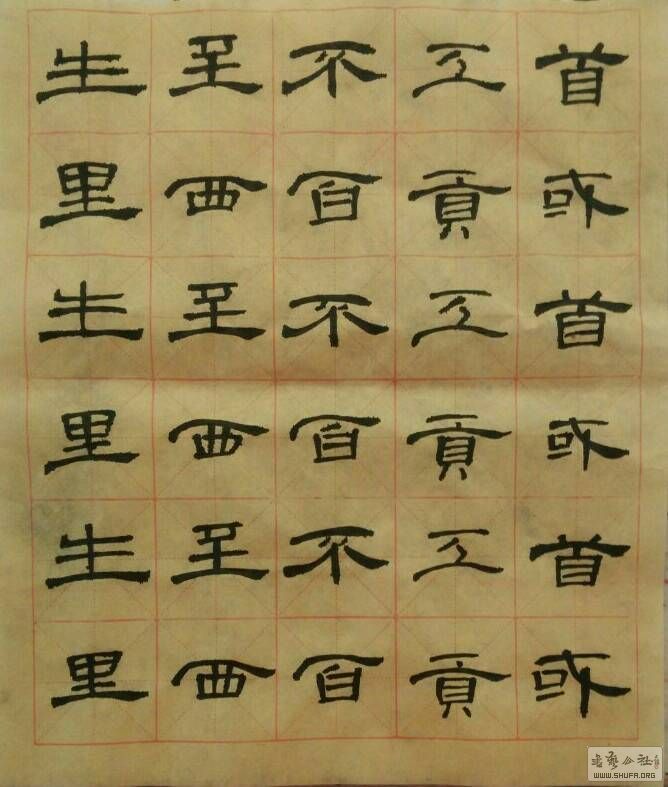 首或首或首或
工貢工貢工貢
不百不百不百
至西至西至西
生里生里生里
書藝公社
WWW.SHUFA.ORG